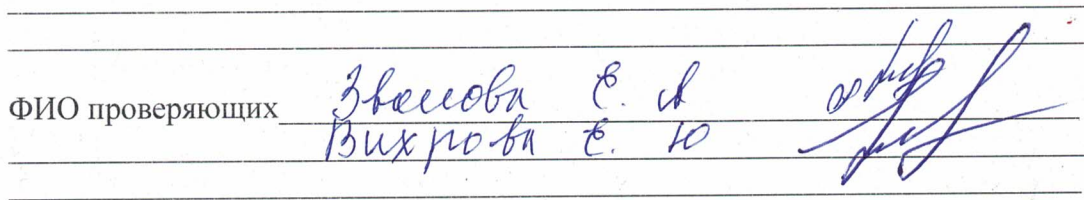 ФИО проверяющих Званова Е. А
Вихрова Е. Ю